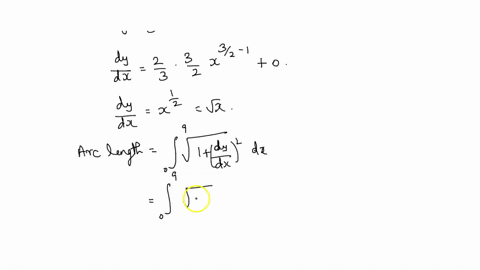 dy/dx = 2/3 · 3/2 x^(3/2 - 1) + 0.
dy/dx = x^(1/2) = √x.
Arc length = ∫₀⁹ √(1+(dy/dx)²) dx
= ∫₀⁹ √